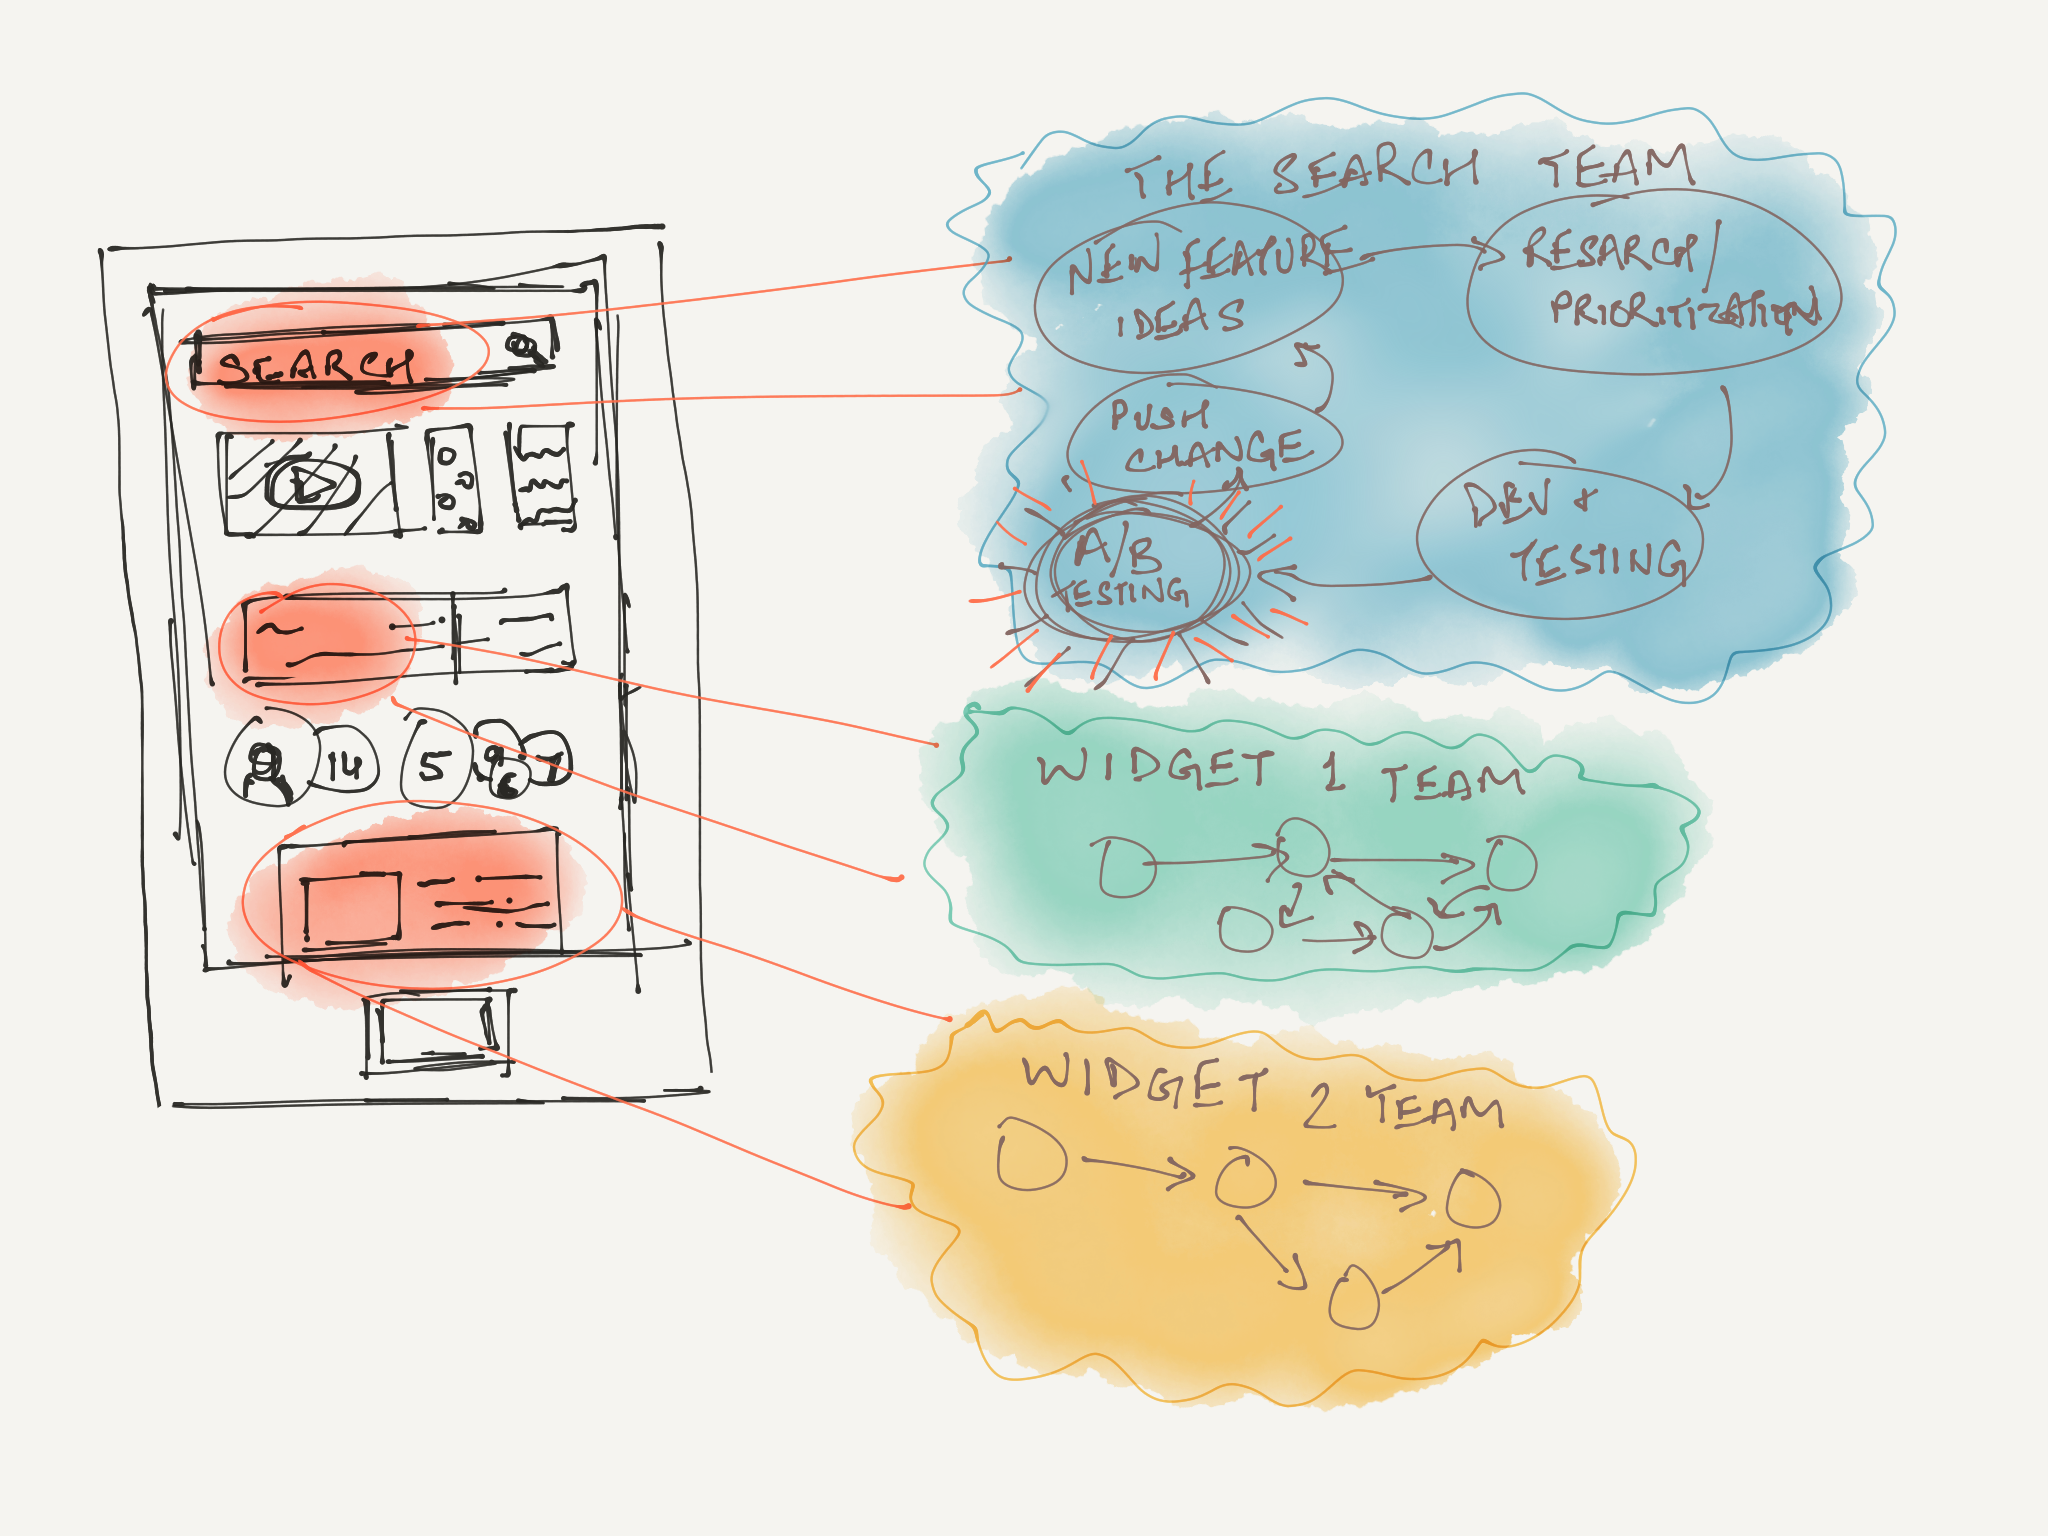 SEARCH
14
5
9
6
THE SEARCH TEAM
NEW FEATURE
IDEAS
RESARCH/
PRIORITIZATION
PUSH
CHANGE
A/B
TESTING
DEV +
TESTING
WIDGET 1 TEAM
WIDGET 2 TEAM